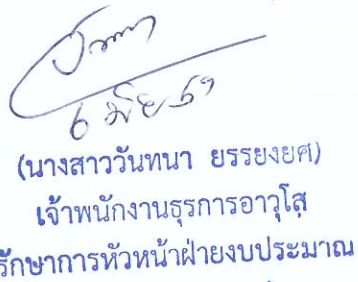 6 มิย 59
(นางสาววันทนา ยรรยงยศ)
เจ้าพนักงานธุรการอาวุโส
รักษาการหัวหน้าฝ่ายงบประมาณ